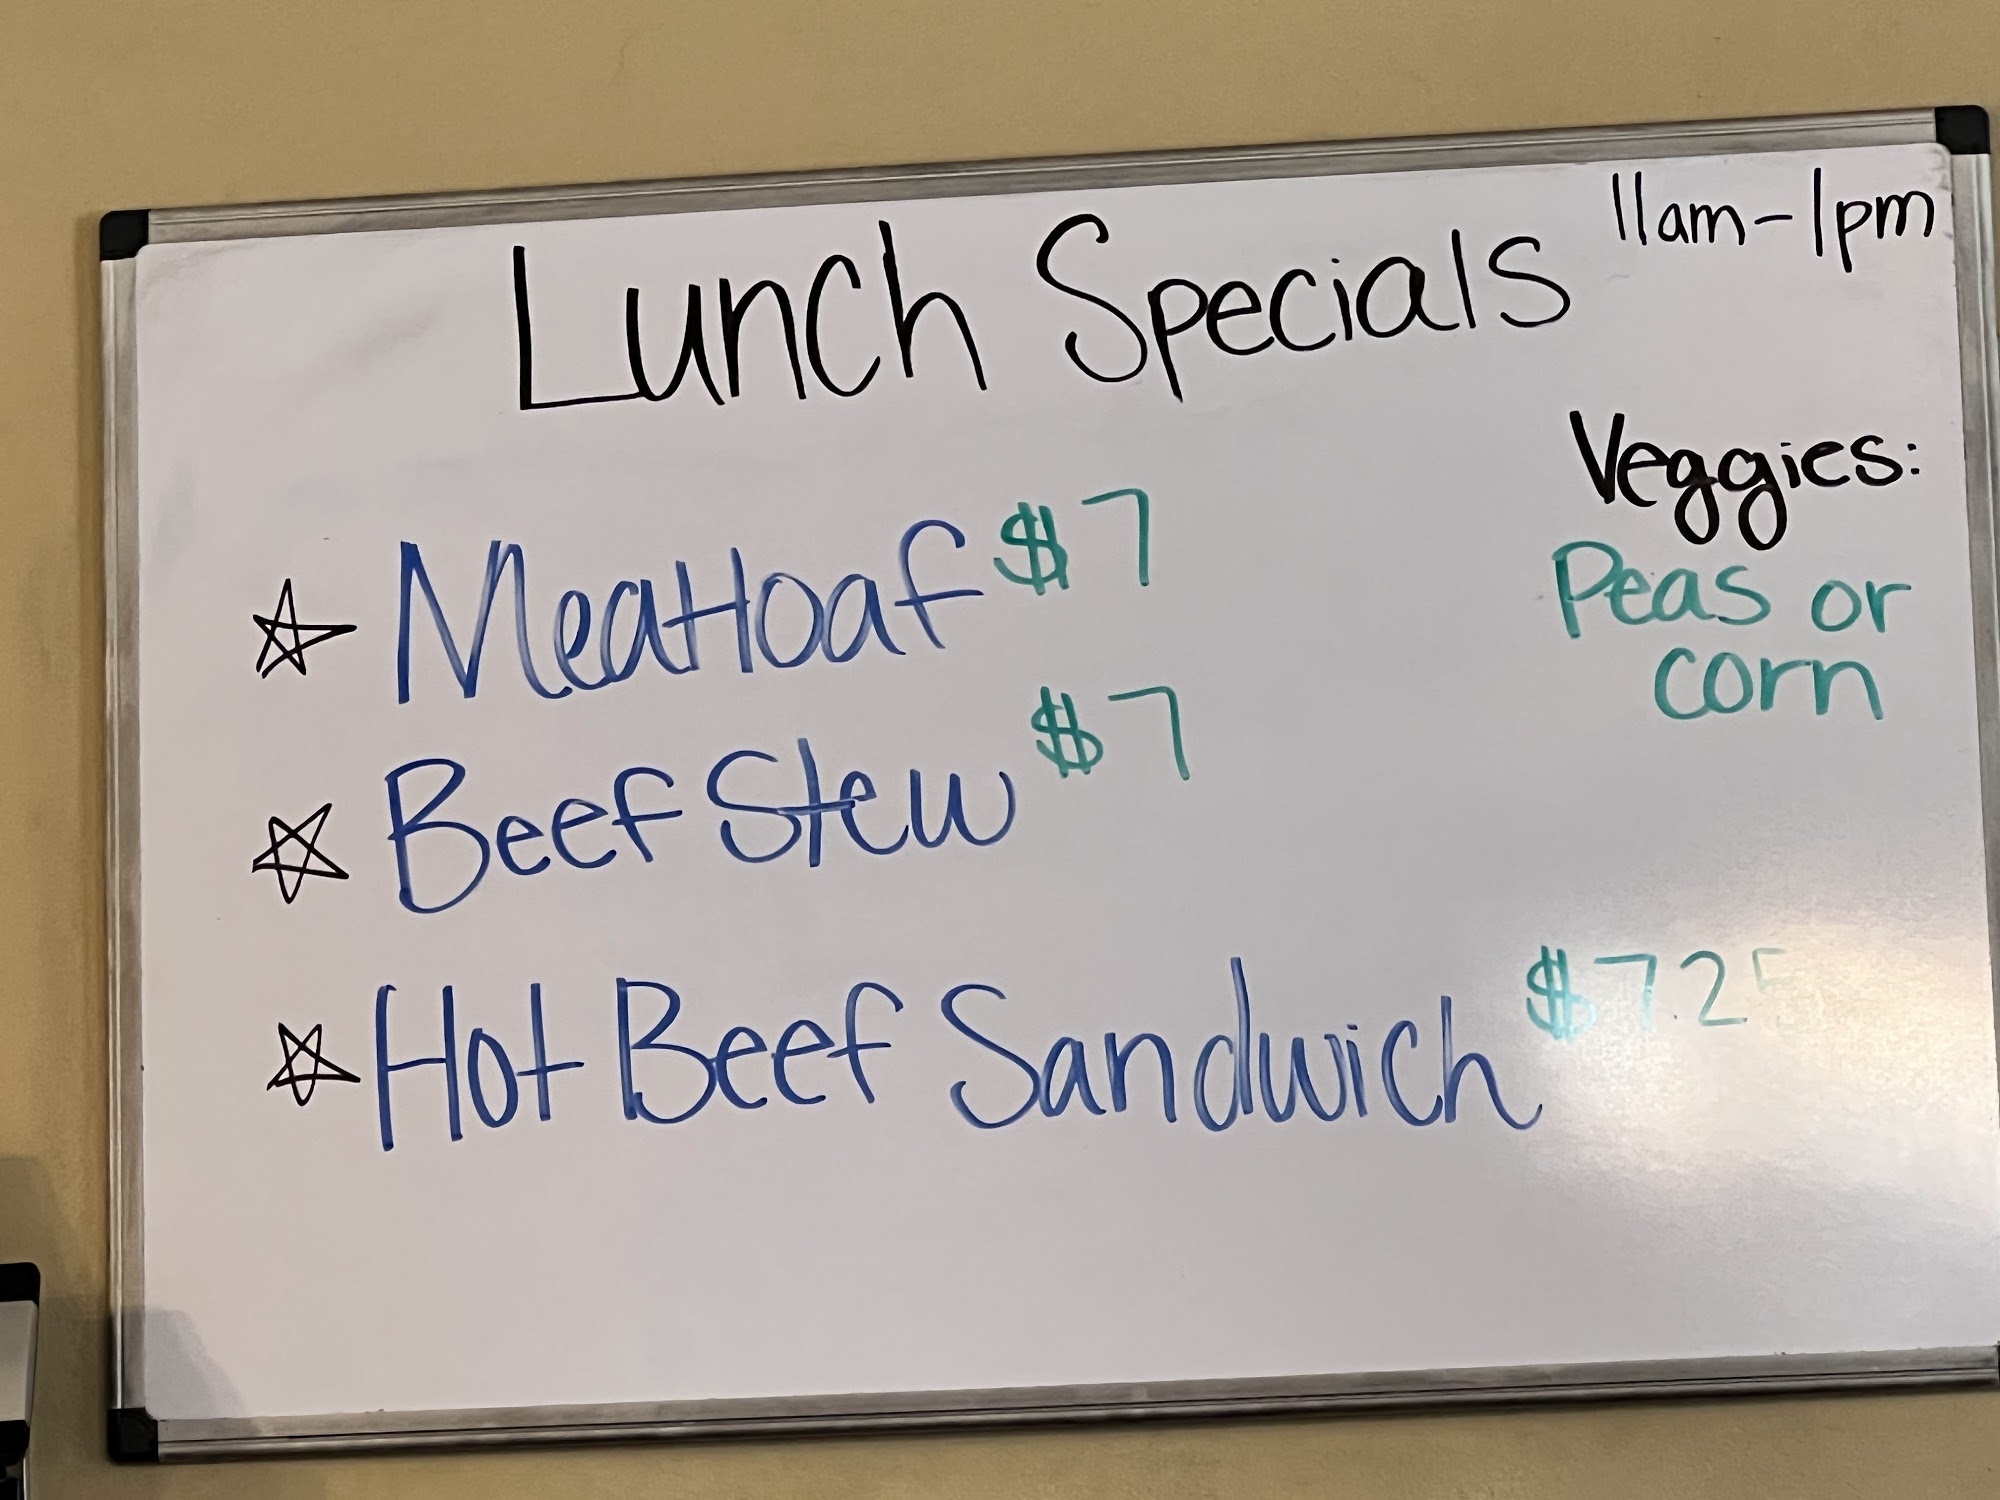 11am-1pm
Lunch Specials
Veggies:
Peas or
corn
Meatloaf $7
Beef Stew $7
Hot Beef Sandwich $7.25